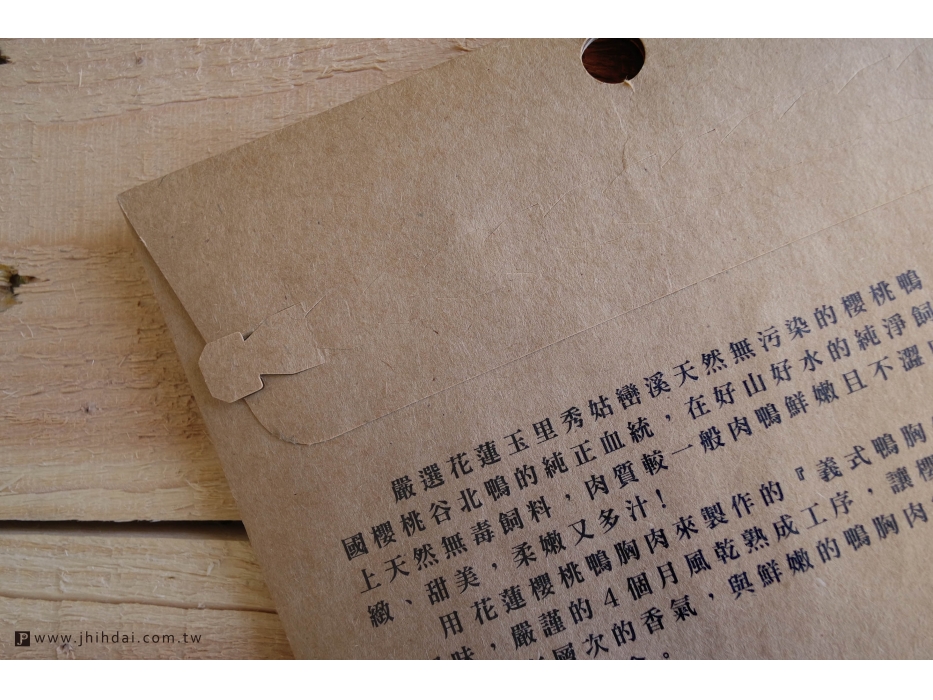 嚴選花蓮玉里秀姑巒溪天然無污染的櫻桃鴨
國櫻桃谷北鴨的純正血統，在好山好水的純淨飼
上天然無毒飼料，肉質較一般肉鴨鮮嫩且不澀
緻、甜美，柔嫩又多汁！
用花蓮櫻桃鴨胸肉來製作的『義式鴨胸
味，嚴謹的4個月風乾熟成工序，讓櫻
層次的香氣，與鮮嫩的鴨胸肉
。
www.jhihdai.com.tw